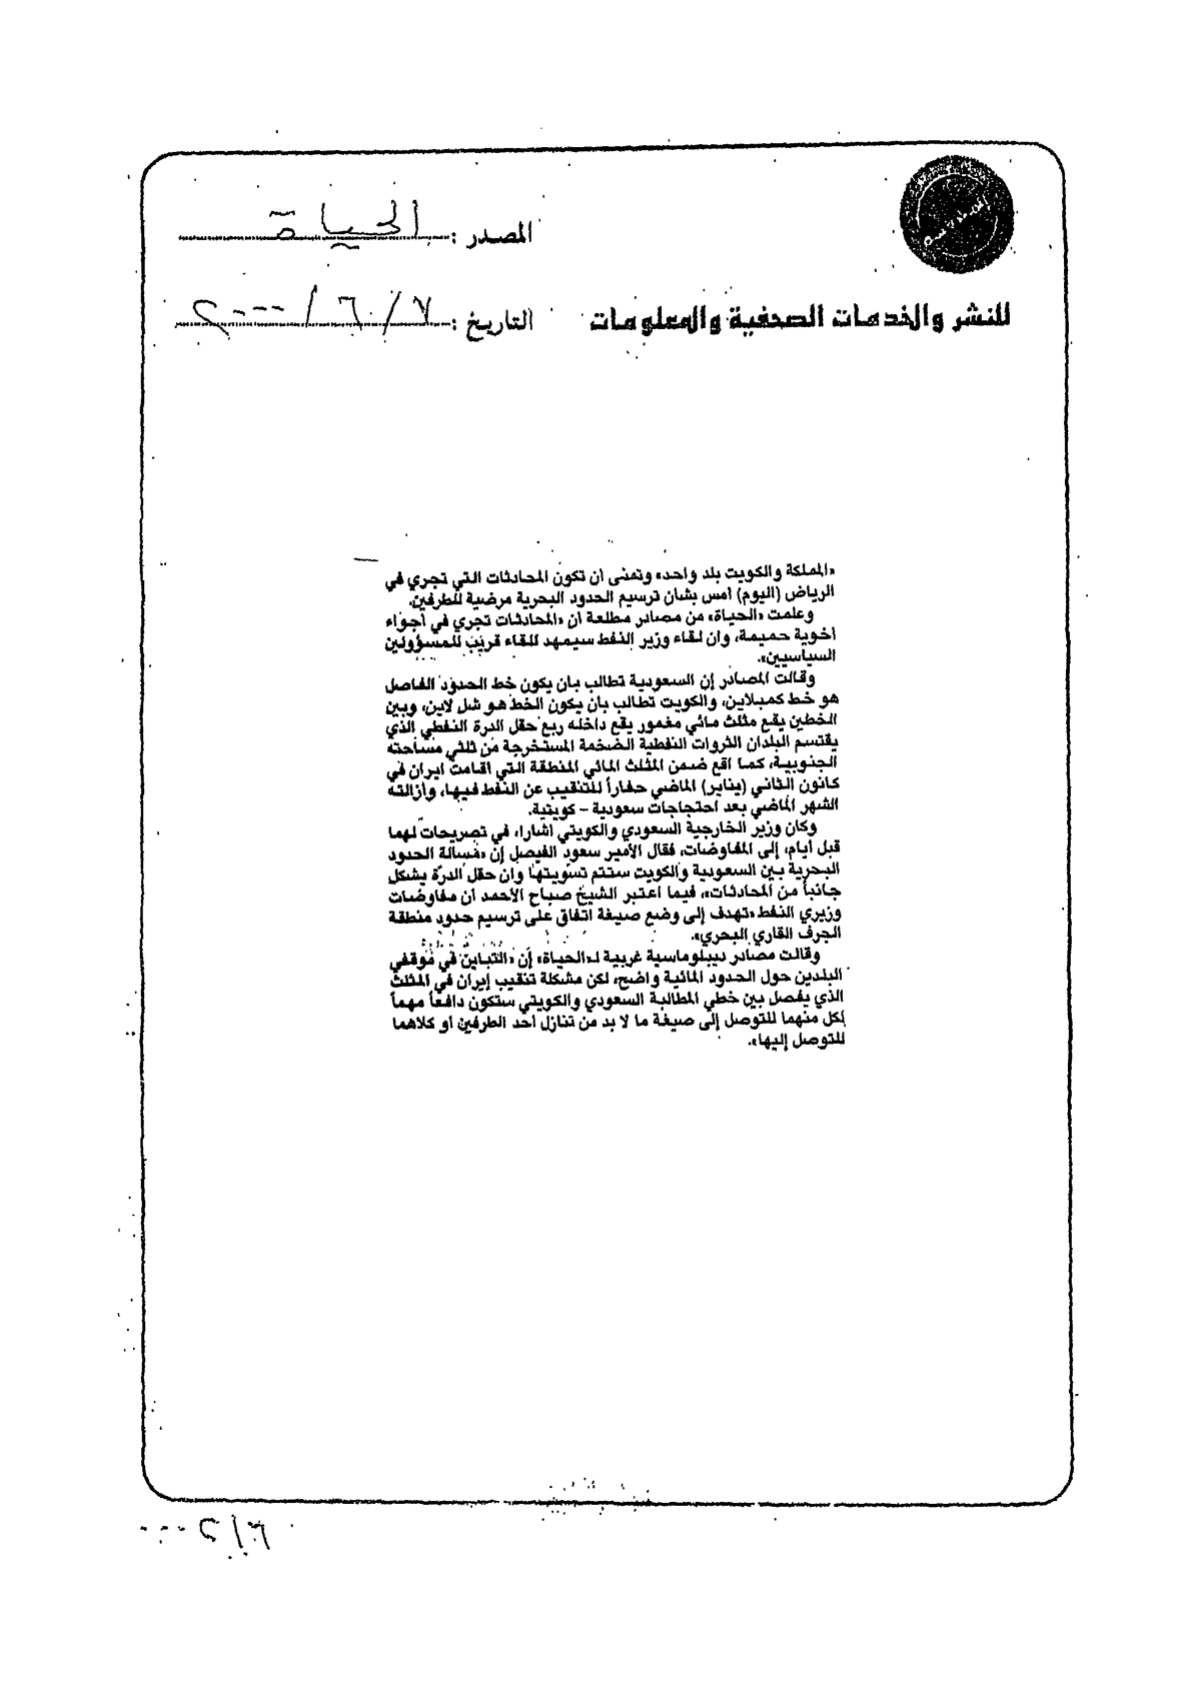 المصدر : الحياة
للنشر والخدمات الصحفية والمعلومات
التاريخ : ٧ / ٦ / ٢٠٠٠
«المملكة والكويت بلد واحد» وتمنى ان تكون المحادثات التي تجري في
الرياض (اليوم) امس بشان ترسيم الحدود البحرية مرضية للطرفين.
وعلمت «الحياة» من مصادر مطلعة ان «المحادثات تجري في أجواء
اخوية حميمة، وان لقاء وزير النفط سيمهد للقاء قريب للمسؤولين
السياسيين».
وقالت المصادر إن السعودية تطالب بان يكون خط الحدود الفاصل
هو خط كمبلاين، والكويت تطالب بأن يكون الخط هو شل لاين، وبين
الخطين يقع مثلث مائي مغمور يقع داخله ربع حقل الدرة النفطي الذي
يقتسم البلدان الثروات النفطية الضخمة المستخرجة من ثلثي مساحته
الجنوبية، كما اقع ضمن المثلث المائي المنطقة التي اقامت ايران في
كانون الثاني (يناير) الماضي حفاراً للتنقيب عن النفط فيها، وازالته
الشهر الماضي بعد احتجاجات سعودية – كويتية.
وكان وزير الخارجية السعودي والكويتي اشارا، في تصريحات لهما
قبل أيام، إلى المفاوضات، فقال الأمير سعود الفيصل إن «مسالة الحدود
البحرية بين السعودية والكويت ستتم تسويتها وان حقل الدرة يشكل
جانباً من المحادثات»، فيما اعتبر الشيخ صباح الأحمد ان مفاوضات
وزيري النفط «تهدف إلى وضع صيغة اتفاق على ترسيم حدود منطقة
الجرف القاري البحري».
وقالت مصادر ديبلوماسية غربية لـ«الحياة» إن «التباين في موقفي
البلدين حول الحدود المائية واضح، لكن مشكلة تنقيب إيران في المثلث
الذي يفصل بين خطي المطالبة السعودي والكويتي ستكون دافعاً مهماً
لكل منهما للتوصل إلى صيغة ما لا بد من تنازل أحد الطرفين أو كلاهما
للتوصل إليها».